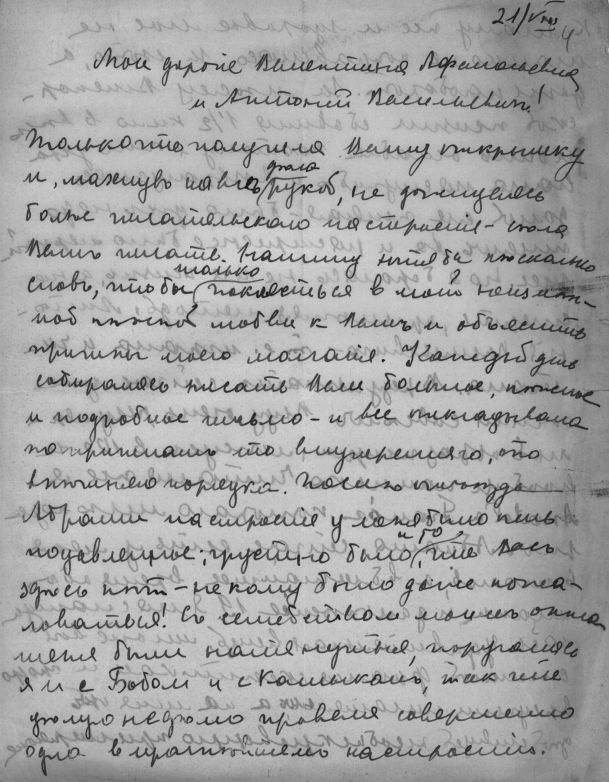 21/VIII
Мои дорогіе Валентина Афанасьевна
и Антоній Васильевичъ!
Только что получила Вашу открытку
и, махнувъ на все рукой, не дожидаясь
болѣе писательского настроенія - сѣла
Вамъ писать. Напишу хотя бы нѣсколько
словъ, чтобы только поклясться в моей неизмѣн-
ной нѣжной любви к Вамъ и объяснить
причины моего молчанія. Каждый день
собиралась писать Вам большое, нѣжное
и подробное письмо - и все откладывала
по причинамъ то внутренняго, то
внѣшняго порядка. После отъѣзда
Абраши настроеніе у меня было очень
подавленное; грустно было и то, что Васъ
здѣсь нѣтъ - некому было даже пожа-
ловаться! Съ семействомъ моимъ отно-
шенія были натянутыя, поругалась
я и с Бобом и с Камыкомъ, так что
цѣлую недѣлю провела совершенно
одна в мрачнѣйшемъ настроеніи.